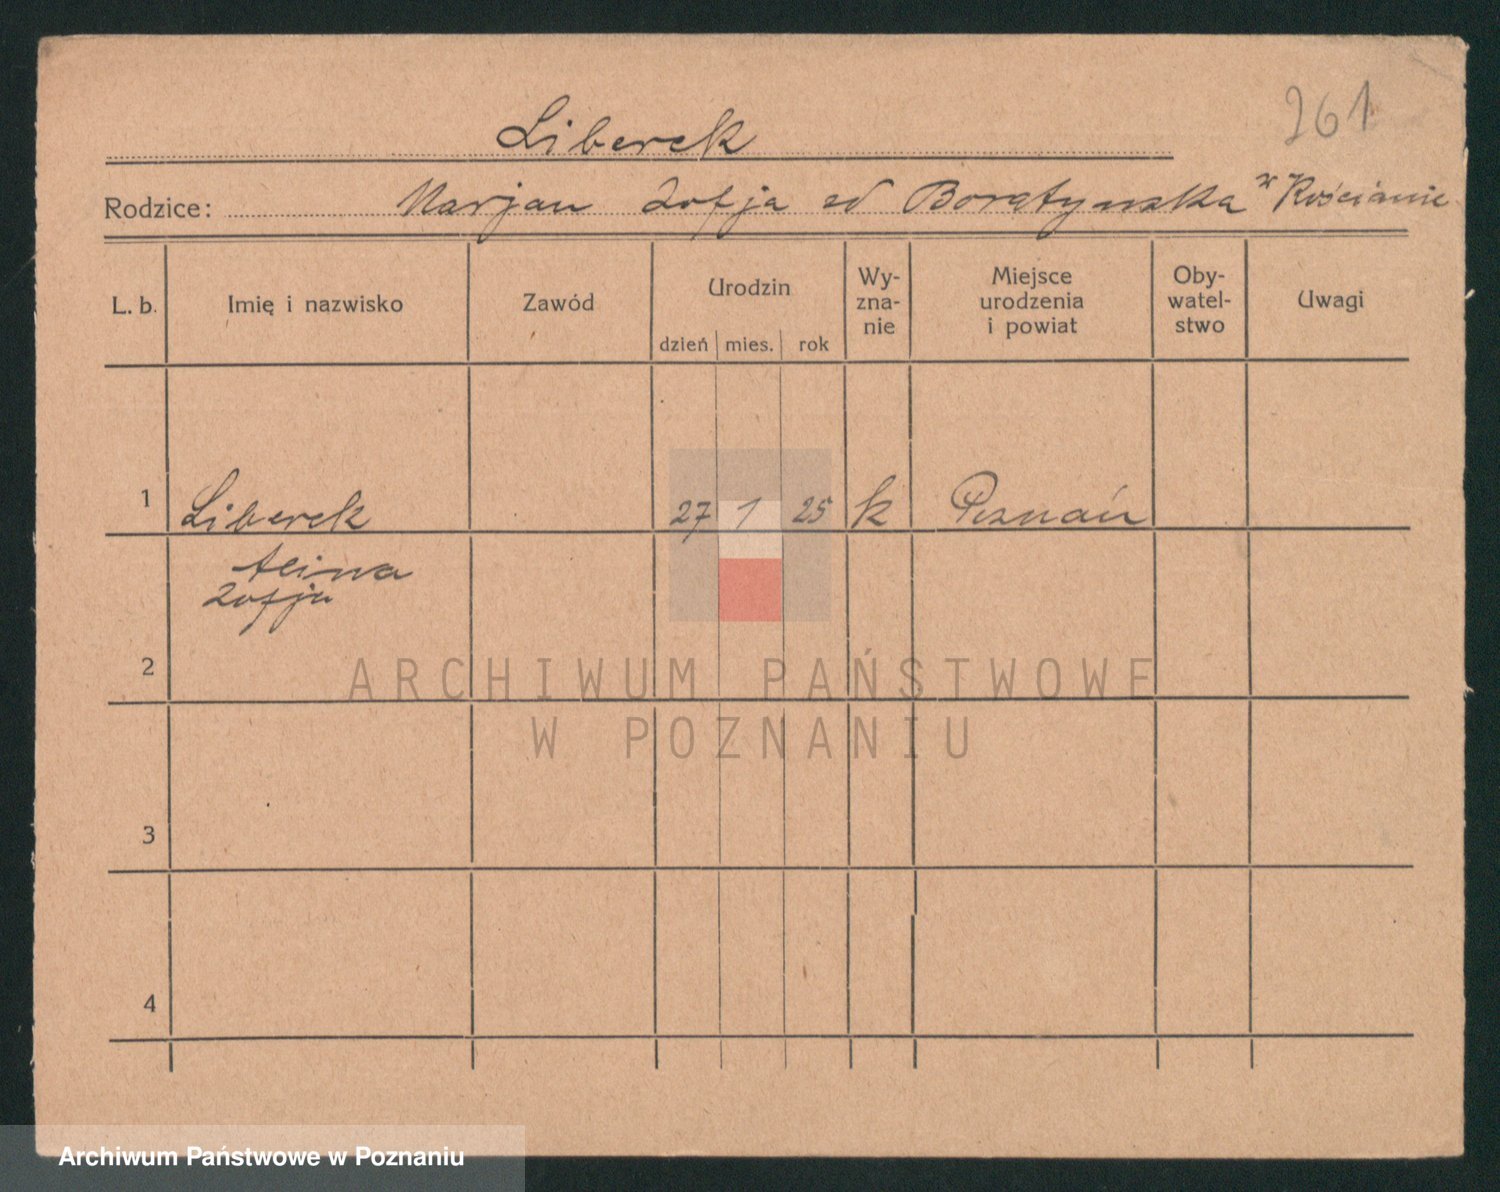 261
Liberek
Rodzice: Marjan Zofja zd Boratynska w Kościanie
L. b. Imię i nazwisko Zawód Urodzin Wy-zna-nie Miejsce urodzenia i powiat Oby-watel-stwo Uwagi
dzień mies. rok
1 Liberek 27 1 25 k Poznań
Alina
Zofja
2
ARCHIWUM PAŃSTWOWE
W POZNANIU
3
4
Archiwum Państwowe w Poznaniu